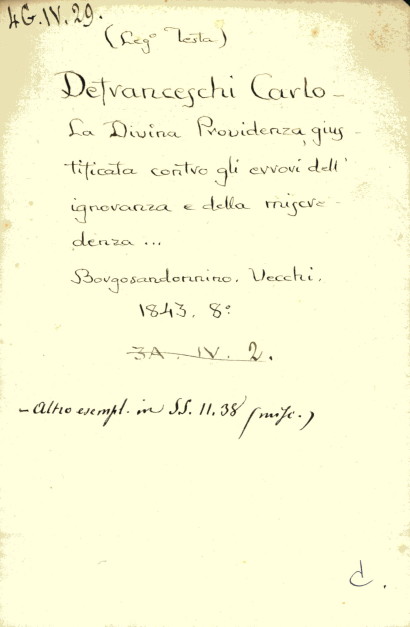 4G.IV.29.
(Leg° Testa)
Defranceschi Carlo -
La Divina Providenza, gius-
tificata contro gli errori dell'
ignoranza e della miscre-
denza ...
Borgosandonnino. Vecchi.
1843. 8°
3A. IV. 2.
- Altro esempl. in SS. 11. 38 (misc.)
d.